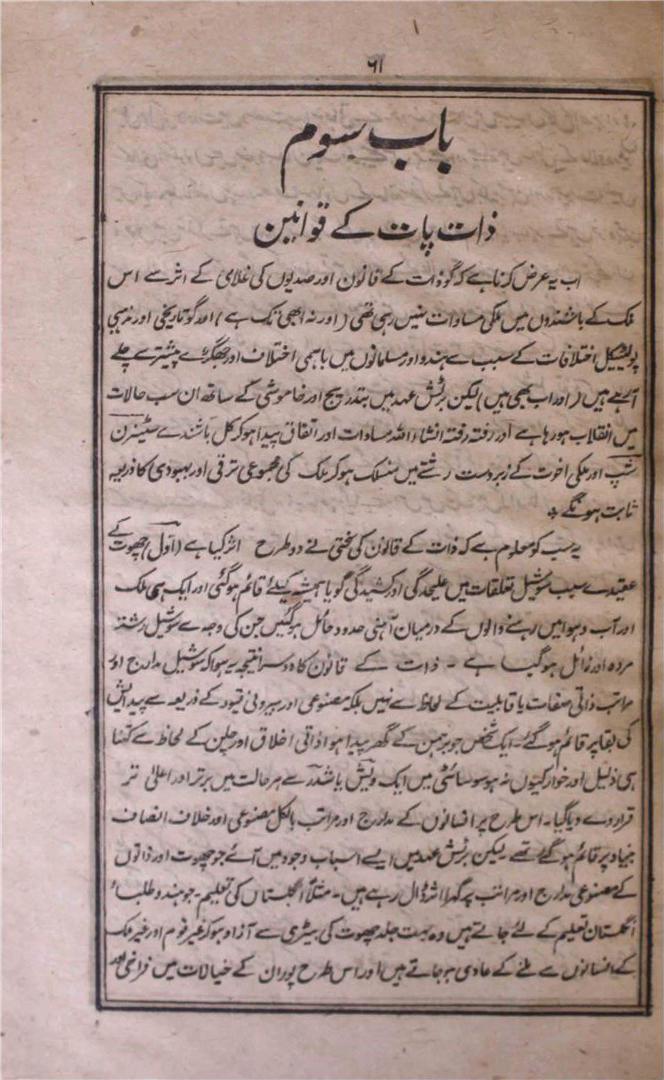 ۶۱
باب سوم
ذات پات کے قوانین
اب یہ عرض کرنا ہے کہ گو ذات کے قانون اور صدیوں کی غلامی کے اثر سے اس
ملک کے باشندوں میں ملکی مساوات نہیں رہی تھی (اور نہ ابھی تک ہے) اور گو تاریخی اور مذہبی
پولیٹیکل اختلافات کے سبب سے ہندو اور مسلمانوں میں باہمی اختلاف اور جھگڑے پیشتر سے چلے
آرہے ہیں (اور اب بھی ہیں) لیکن برٹش عہد میں بتدریج اور خاموشی کے ساتھ ان سب حالات
میں انقلاب ہورہا ہے اور رفتہ رفتہ انشاءاللہ مساوات اور اتفاق پیدا ہوکر کل باشندے سٹیزن
شپ اور ملکی اخوت کے زبردست رشتے میں منسلک ہوکر ملک کی مجموعی ترقی اور بہبودی کا ذریعہ
ثابت ہونگے ٭
یہ سب کو معلوم ہے کہ ذات کے قانون کی سختی نے دو طرح اثر کیا ہے (اول) چھوت کے
عقیدے سبب سوشیل تعلقات میں علیحدگی اور کشیدگی گویا ہمیشہ کیلئے قائم ہوگئی اور ایک ہی ملک
اور آب و ہوا میں رہنے والوں کے درمیان آہنی حدود حائل ہوگئیں جن کی وجہ سے سوشیل رشتہ
مردہ اور زائل ہوگیا ہے ۔ ذات کے قانون کا دوسرا نتیجہ یہ ہوا کہ سوشیل مدارج اور
مراتب ذاتی صفات یا قابلیت کے لحاظ سے نہیں بلکہ مصنوعی اور بیرونی قیود کے ذریعہ سے پیدایش
کی بنا پر قائم ہوگئے۔ ایک شخص جو برہمن کے گھر پیدا ہوا ذاتی اخلاق اور چلن کے لحاظ سے کتنا
ہی ذلیل اور خوار کیوں نہ ہو سوسائٹی میں ایک ویش یا شدر سے ہر حالت میں برتر اور اعلیٰ تر
قرار دے دیا گیا۔ اس طرح پر انسانوں کے مدارج اور مراتب بالکل مصنوعی اور خلاف انصاف
بنیاد پر قائم ہوگئے تھے لیکن برٹش عہد میں ایسے اسباب وجود میں آئے جو چھوت اور ذاتوں
کے مصنوعی مدارج اور مراتب پر گہرا اثر ڈال رہے ہیں۔ مثلاً انگلستان کی تعلیم۔ جو ہندو طلباء
انگلستان تعلیم کے لئے جاتے ہیں وہ بہت جلد چھوت کی بیڑی سے آزاد ہوکر غیر قوم اور غیر ملک
کے انسانوں سے ملنے کے عادی ہوجاتے ہیں اور اس طرح پوران کے خیالات میں فراخی اور